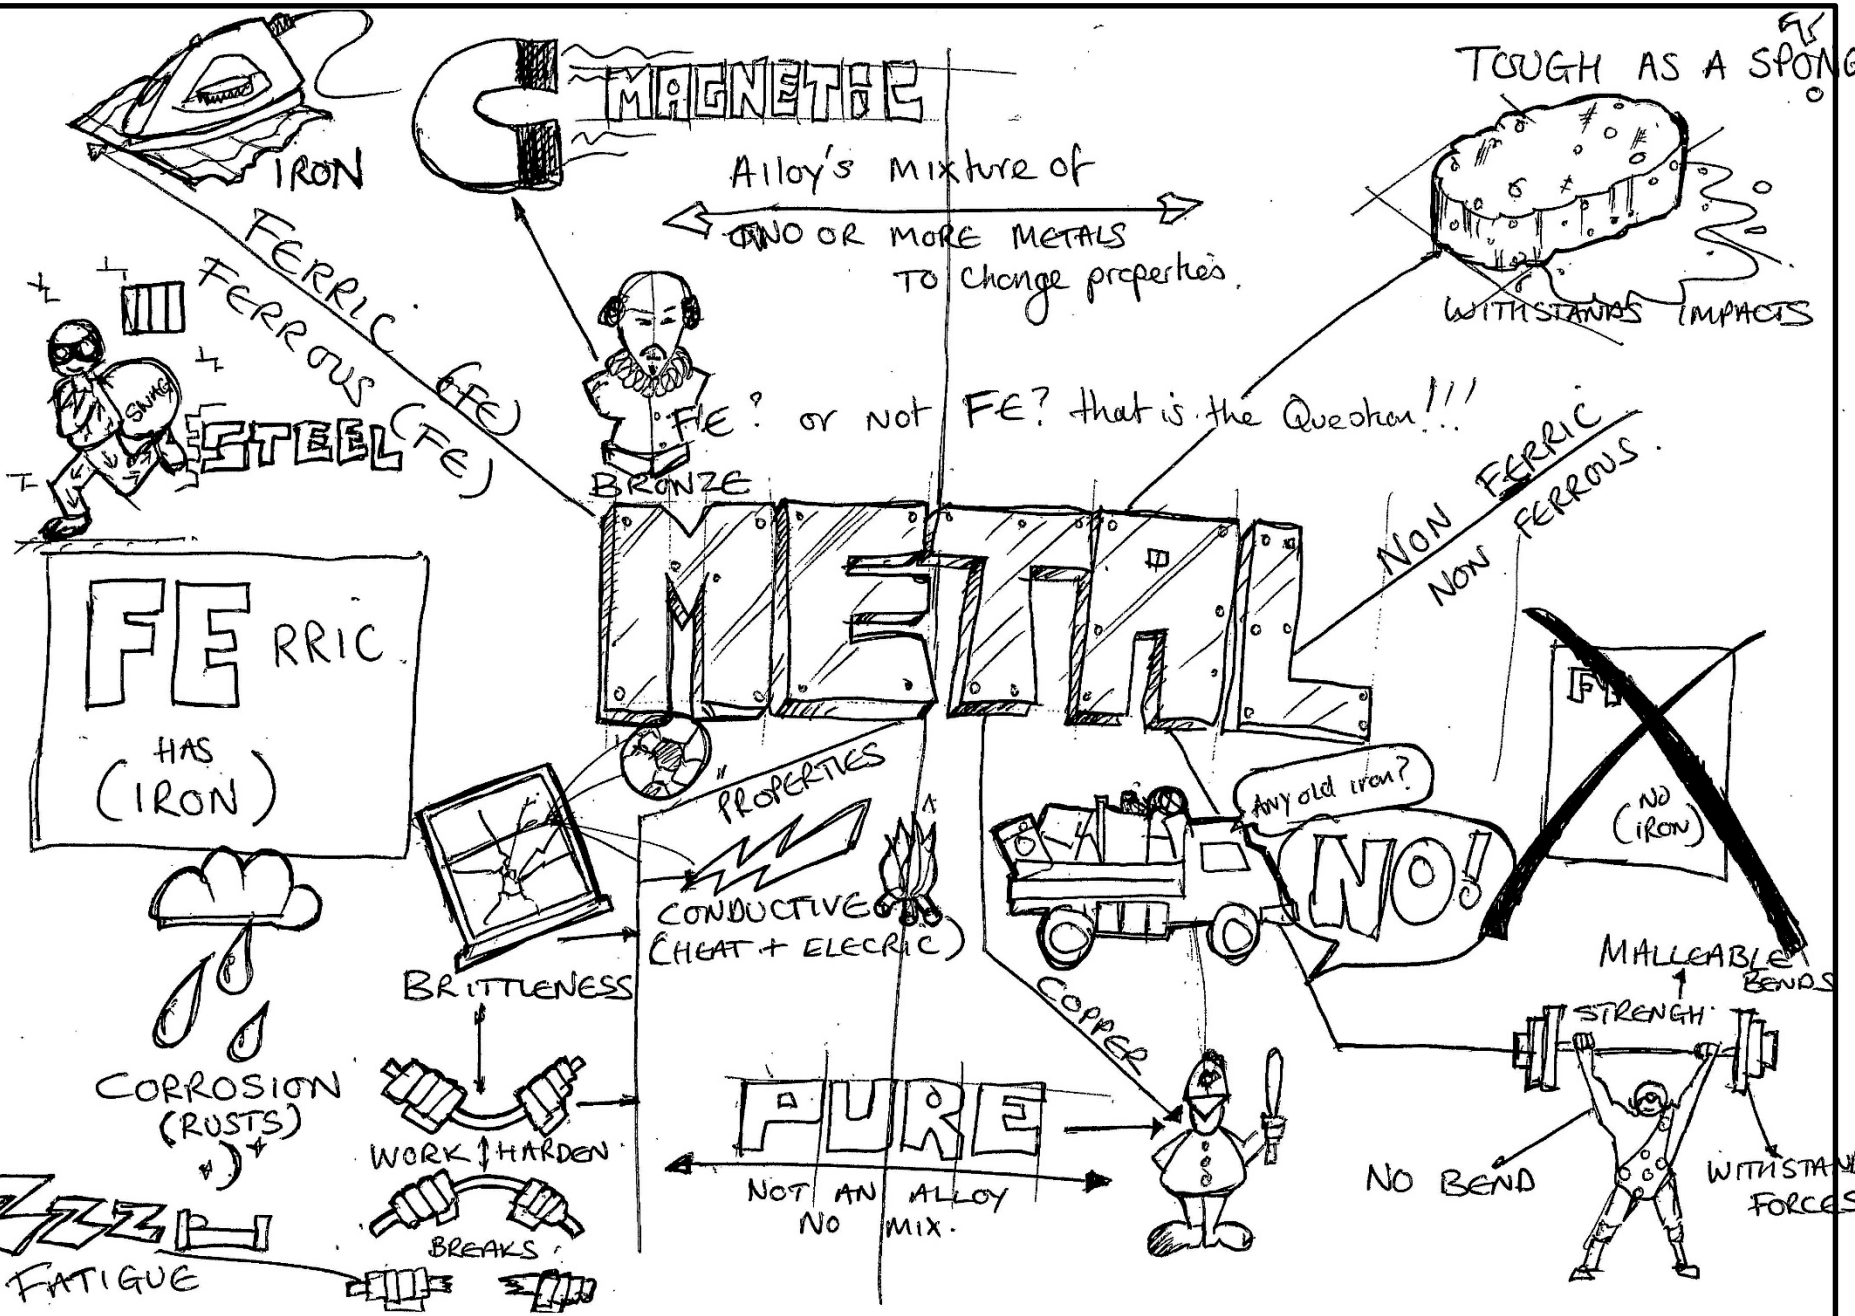 IRON
MAGNETIC
TOUGH AS A SPONG
Alloy's Mixture of
OR MORE METALS
TO Change properties.
WITHSTANDS IMPACTS
FERRIC (FE)
FERROUS (FE)
SWAG
STEEL
FE? or not FE? that is the Question!!!
BRONZE
NON FERRIC
NON FERROUS.
METAL
FE RRIC
HAS
(IRON)
FE
NO
(IRON)
PROPERTIES
Any old iron?
NO!
CONDUCTIVE
(HEAT + ELECRIC)
BRITTLENESS
COPPER
MALLEABLE
BENDS
STRENGH
CORROSION
(RUSTS)
WORK HARDEN
PURE
NOT AN ALLOY
NO MIX.
NO BEND
WITHSTAN
FORCES
ZZZZ
BREAKS
FATIGUE